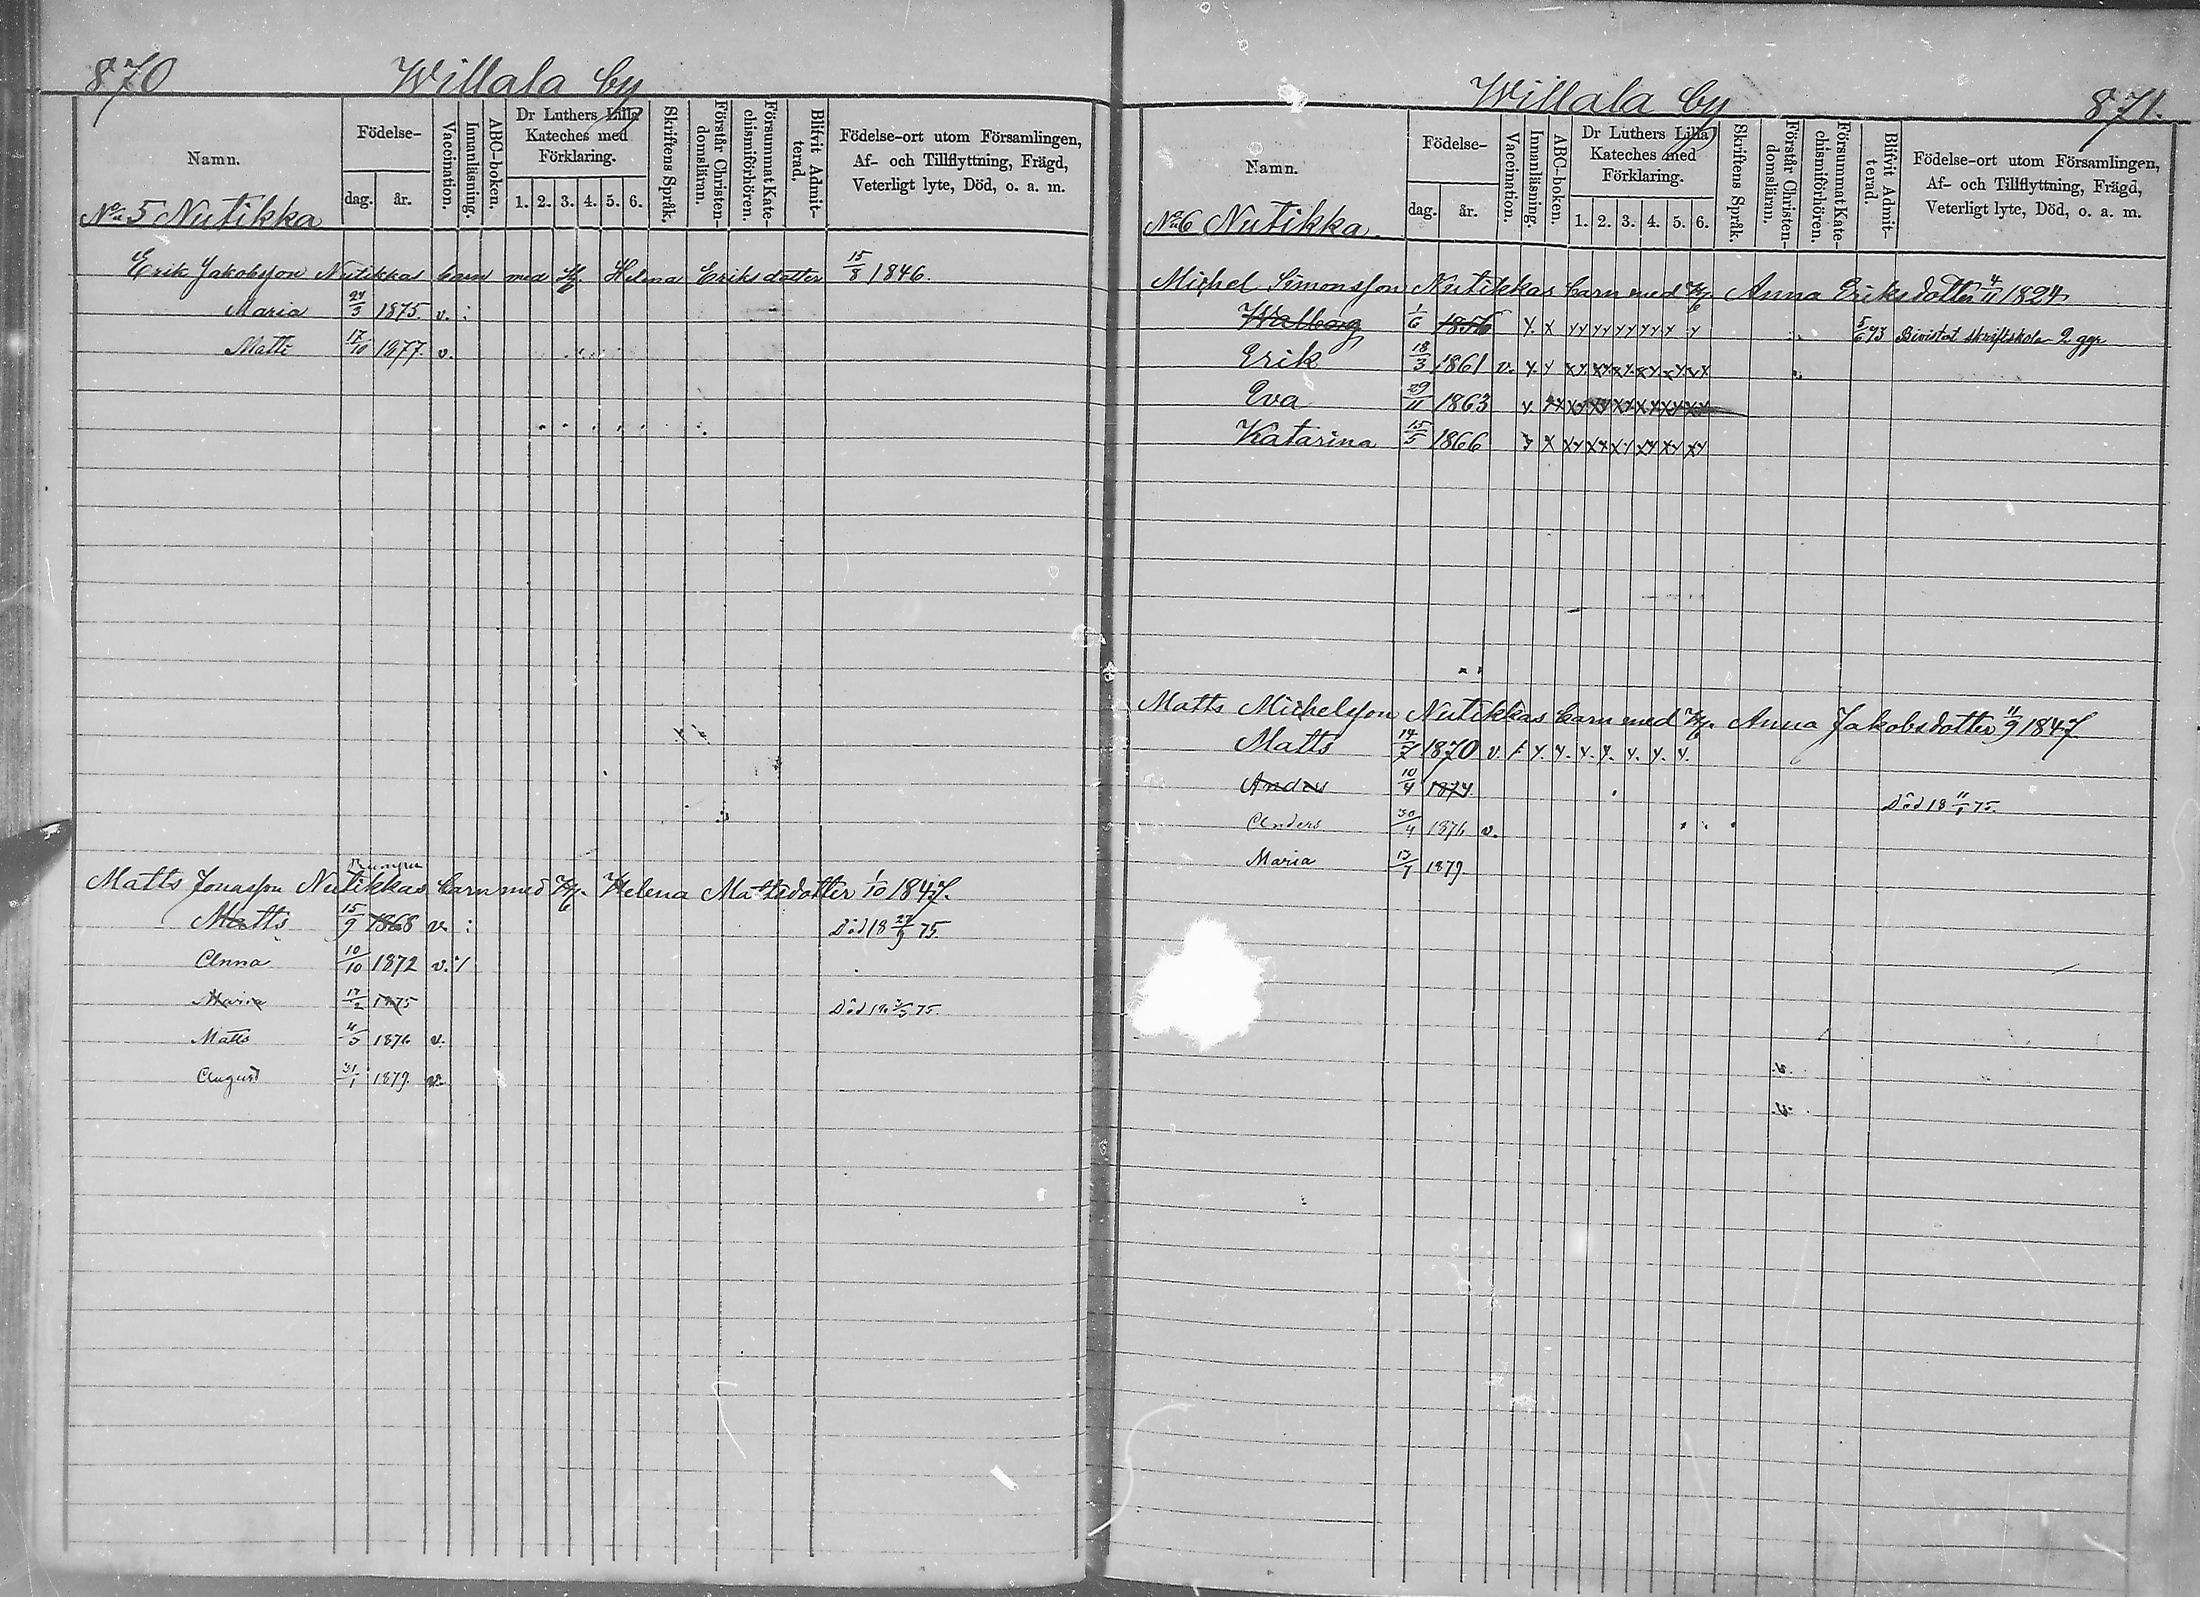 870 Willala by
Namn.
Födelse-
dag. år.
Vaccination.
Innanläsning.
ABC-boken.
Dr Luthers Lilla
Kateches med
Förklaring.
1. 2. 3. 4. 5. 6.
Skriftens Språk.
Förstår Christen-
domsläran.
Försummat Kate-
chismiförhören.
Blifvit Admit-
terad.
Födelse-ort utom Församlingen,
Af- och Tillflyttning, Frägd,
Veterligt lyte, Död, o. a. m.
No 5 Nutikka
Erik Jakobsson Nutikkas barn med H. Helena Eriksdotter 15/8 1846.
Maria 27/3 1875. v. :
Matti 17/10 1877. v.
Matts Jonasson Nutikkas barn med H. Helena Mattsdotter 1/10 1847.
Matts 15/9 1868 v. : Död 18 27/9 75.
Anna 10/10 1872 v.
Maria 17/2 1875 Död 75.
Matts 1876 v.
August 31/1 1879. v.
Willala by 871.
Namn.
Födelse-
dag. år.
Vaccination.
Innanläsning.
ABC-boken.
Dr Luthers Lilla
Kateches med
Förklaring.
1. 2. 3. 4. 5. 6.
Skriftens Språk.
Förstår Christen-
domsläran.
Försummat Kate-
chismiförhören.
Blifvit Admit-
terad.
Födelse-ort utom Församlingen,
Af- och Tillflyttning, Frägd,
Veterligt lyte, Död, o. a. m.
No 6 Nutikka.
Michel Simonsson Nutikkas barn med H. Anna Eriksdotter 4/11 1824
Walborg 1/6 1856 5/6 73 Bevistat skriftskola 2 ggr
Erik 18/3 1861 v.
Eva 29/11 1863
Katarina 15/5 1866
Matts Michelsson Nutikkas barn med H. Anna Jakobsdotter 11/9 1847
Matts 14/7 1870 v.
Anders 10/4 1874. Död 18 75.
Anders 30/4 1876 v.
Maria 13/7 1879